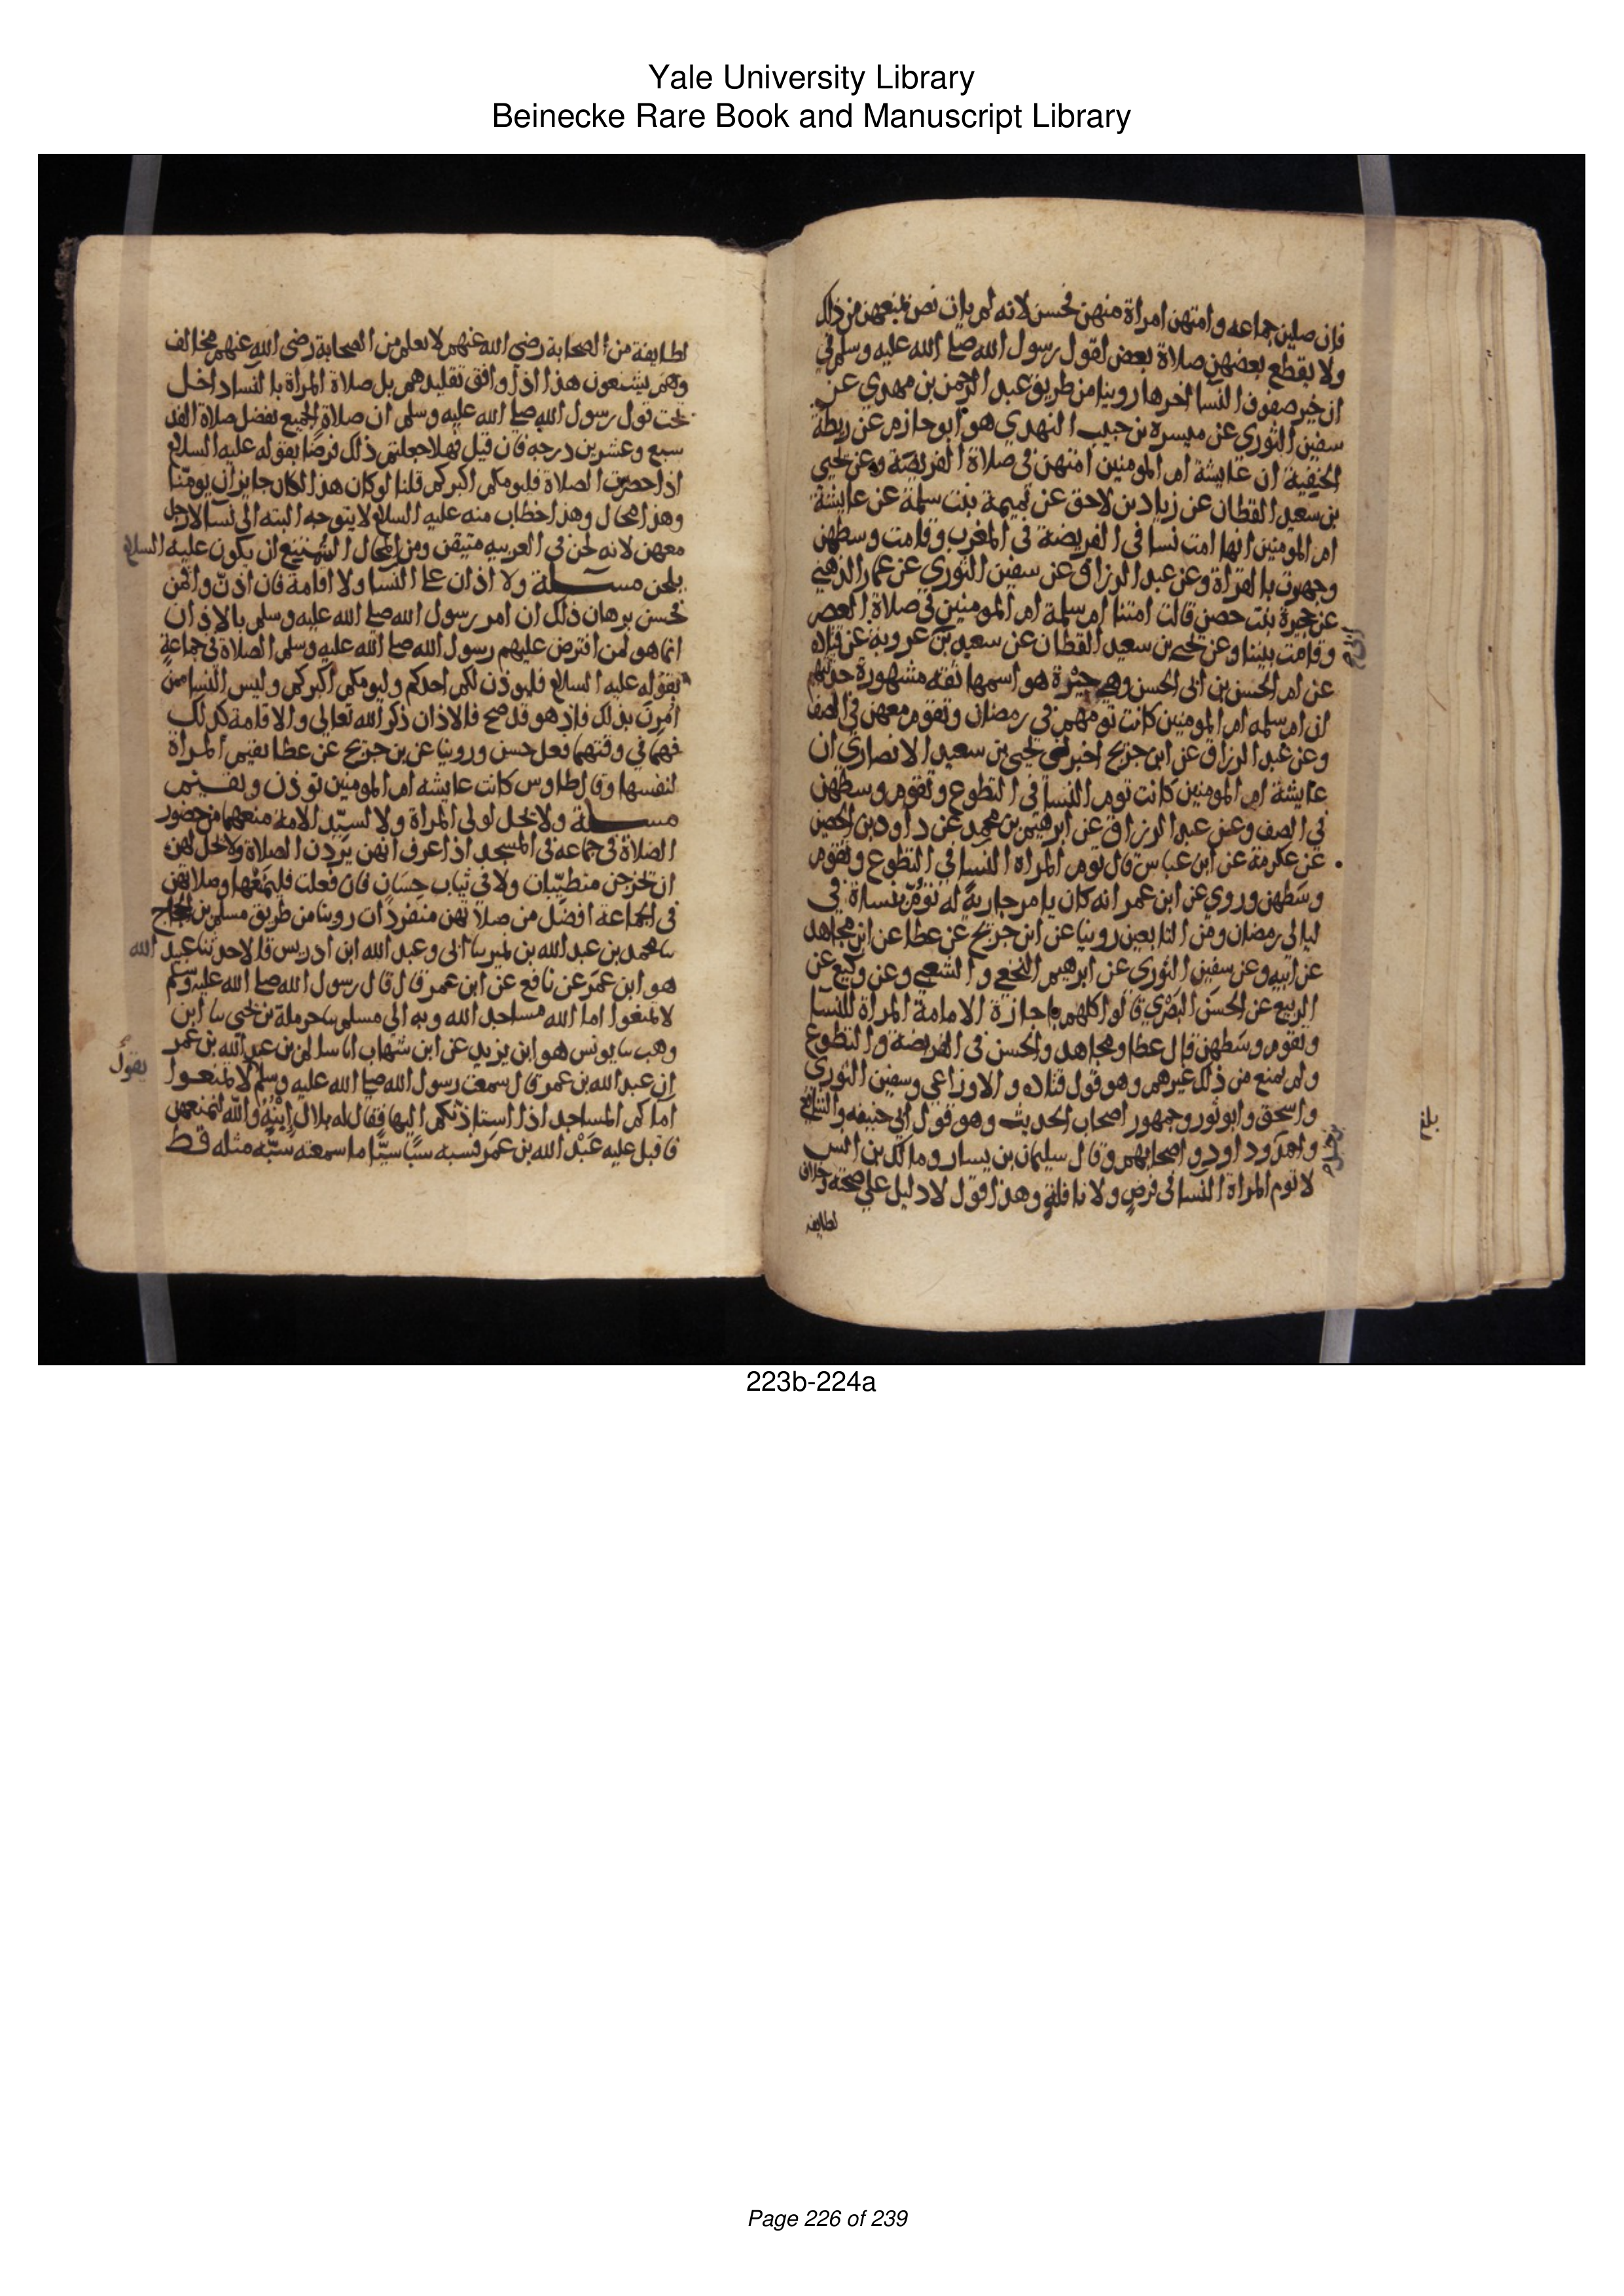 Yale University Library
Beinecke Rare Book and Manuscript Library
فان صلين جماعه وامتهن امراة منهن فحسن لانه لم يات نص يمنعهن من ذلك
ولا يقطع بعضهن صلاة بعض لقول رسول الله صلى الله عليه وسلم في
ان خير صفوف النسا اخرها روينا من طريق عبد الرحمن بن مهدي عن
سفين الثوري عن ميسرة بن حبيب النهدي هو ابو حازم عن ريطة
الحنفية ان عايشة ام المومنين امتهن في صلاة الفريضة وعن يحيى
بن سعيد القطان عن زياد بن لاحق عن تميمة بنت سلمة عن عايشة
ام المومنين انها امت نسا في الفريضة في المغرب وقامت وسطهن
وجهرت بالقراة وعن عبد الرزاق عن سفين الثوري عن عمار الدهني
عن حجيرة بنت حصين قالت امتنا ام سلمة ام المومنين في صلاة العصر
وقامت بيننا وعن يحيى بن سعيد القطان عن سعيد بن عروبة عن قتاده
عن ام الحسن بن ابي الحسن وهي خيرة هو اسمها ثقه مشهورة حدثتهم
ان ام سلمه ام المومنين كانت تومهن في رمضان وتقوم معهن في الصف
وعن عبد الرزاق عن ابن جريج اخبرني يحيى بن سعيد الانصاري ان
عايشة ام المومنين كانت توم النسا في التطوع وتقوم وسطهن
في الصف وعن عبد الرزاق عن ابرهيم بن محمد عن داود بن الحصين
عن عكرمة عن ابن عباس قال توم المراه النسا في التطوع وتقوم
وسطهن وروي عن ابن عمر انه كان يامر جارية له تؤم نساة في
ليالي رمضان ومن التابعين روينا عن ابن جريج عن عطا عن ابن مجاهد
عن ابيه وعن سفين الثوري عن ابرهيم النخعي والشعبي وعن وكيع عن
الربيع عن الحسن البصري قالوا كلهم باجازة الامامة المراة للنسا
وتقوم وسطهن قال عطا ومجاهد والحسن في الفريضة والتطوع
ولم يمنع من ذلك غيرهم وهو قول قتاده والاوزاعي وسفين الثوري
واسحق وابو ثور وجمهور اصحاب الحديث وهو قول ابي حنيفه والشافعي
واحمد وداود واصحابهم وقال سليمان بن يسار ومالك بن انس
لا توم المراة النسا في فرض ولا نافلة وهذا قول لا دليل على صحته وخلاف
لطايفه
بلغ
لطايفة من الصحابة رضي الله عنهم لا يعلم من الصحابة رضي الله عنهم مخالف
وهم يشنعون هذا اذا وافق تقليدهم بل صلاة المراة بالنسا داخل
تحت قول رسول الله صلى الله عليه وسلم ان صلاة الجميع تفضل صلاة الفذ
سبع وعشرين درجه فان قيل فهلا جعلتم ذلك فرضا بقوله عليه السلام
اذا حضرت الصلاة فليومكم اكبركم قلنا لو كان هذا لكان جايز ان يومنا
وهذا محال وهذا خطاب منه عليه السلام لا يتوجه البته الى نسا لا رجل
معهن لانه لحن في العربيه متيقن ومن المحال الشنيع ان يكون عليه السلام
يلحن مسلة ولا اذان على النسا ولا اقامة فان اذن واقمن
فحسن برهان ذلك ان امر رسول الله صلى الله عليه وسلم بالاذان
انما هو لمن افترض عليهم رسول الله صلى الله عليه وسلم الصلاة في جماعة
بقوله عليه السلام فليوذن لكم احدكم وليومكم اكبركم وليس النسا ممن
امرن بذلك فاذ هو قد صح فالاذان ذكر الله تعالى والاقامة كذلك
فهما في وقتهما فعل حسن وروينا عن بن جريج عن عطا تقيم المراة
لنفسها وقال طاوس كانت عايشه ام المومنين توذن وتقيم
مسلة ولا يحل لولي المراة ولا لسيد الامة منعهما من حضور
الصلاة في جماعه في المسجد اذا عرف انهن يردن الصلاة ولا يحل لهن
ان تخرجن متطيبات ولا في ثياب حسان فان فعلت فليمنعها وصلاتهن
في الجماعة افضل من صلاتهن منفردات روينا من طريق مسلم بن الحجاج
نا محمد بن عبد الله بن نمير نا ابي وعبد الله ابن ادريس قالا حدثنا عبيد الله
هو ابن عمر عن نافع عن ابن عمر قال قال رسول الله صلى الله عليه وسلم
لا تمنعوا اما الله مساجد الله وبه الى مسلم نا حرملة بن يحيى نا ابن
وهب نا يونس هو ابن يزيد عن ابن شهاب انا سالم بن عبد الله بن عمر
ان عبد الله بن عمر قال سمعت رسول الله صلى الله عليه وسلم لا تمنعوا
يقول
اماكم المساجد اذا استاذنكم اليها فقال له بلال ابنه والله لنمنعهن
فاقبل عليه عبد الله بن عمر فسبه سبا سيا ما سمعته سبه مثله قط
223b-224a
Page 226 of 239